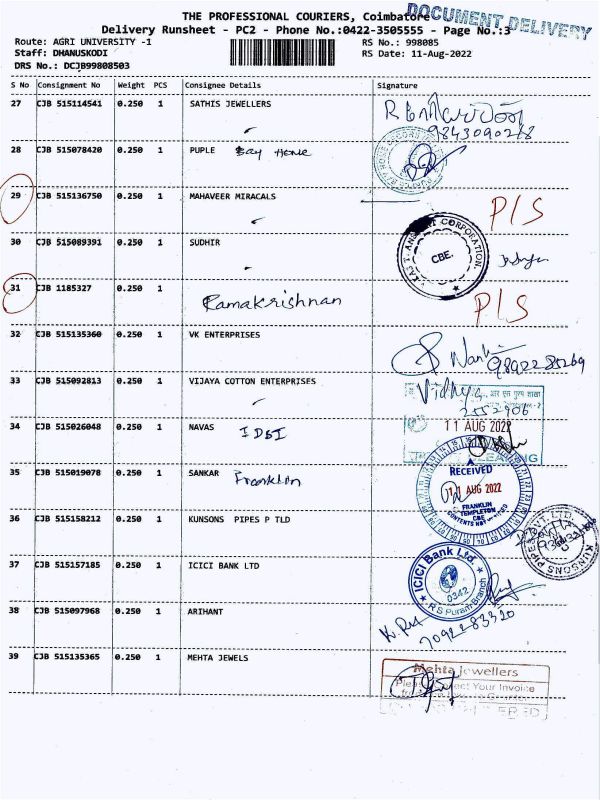 THE PROFESSIONAL COURIERS, Coimbatore
DOCUMENT DELIVERY
Delivery Runsheet - PC2 - Phone No.:0422-3505555 - Page No.:3
Route: AGRI UNIVERSITY -1
RS No.: 998085
Staff: DHANUSKODI
RS Date: 11-Aug-2022
DRS No.: DCJB99808503
S No Consignment No Weight PCS Consignee Details Signature
27 CJB 515114541 0.250 1 SATHIS JEWELLERS
9843090268
28 CJB 515078420 0.250 1 PUPLE Bay Home
29 CJB 515136750 0.250 1 MAHAVEER MIRACALS
P/S
30 CJB 515089391 0.250 1 SUDHIR
CORPORATION
CBE.
31 CJB 1185327 0.250 1
Ramakrishnan
P/S
32 CJB 515135360 0.250 1 VK ENTERPRISES
9892285269
33 CJB 515092813 0.250 1 VIJAYA COTTON ENTERPRISES
Vidhya
2552906
34 CJB 515026048 0.250 1 NAVAS IDBI
11 AUG 2022
CLEARING
35 CJB 515019078 0.250 1 SANKAR Franklin
RECEIVED
11 AUG 2022
FRANKLIN
TEMPLETON
CBE
CONTENTS NOT VERIFIED
36 CJB 515158212 0.250 1 KUNSONS PIPES P TLD
KUNSONS PIPES PVT LTD.
37 CJB 515157185 0.250 1 ICICI BANK LTD
ICICI Bank Ltd.
0342
R S Puram Branch
38 CJB 515097968 0.250 1 ARIHANT
7092283320
39 CJB 515135365 0.250 1 MEHTA JEWELS
Mehta jewellers
Your Invoice